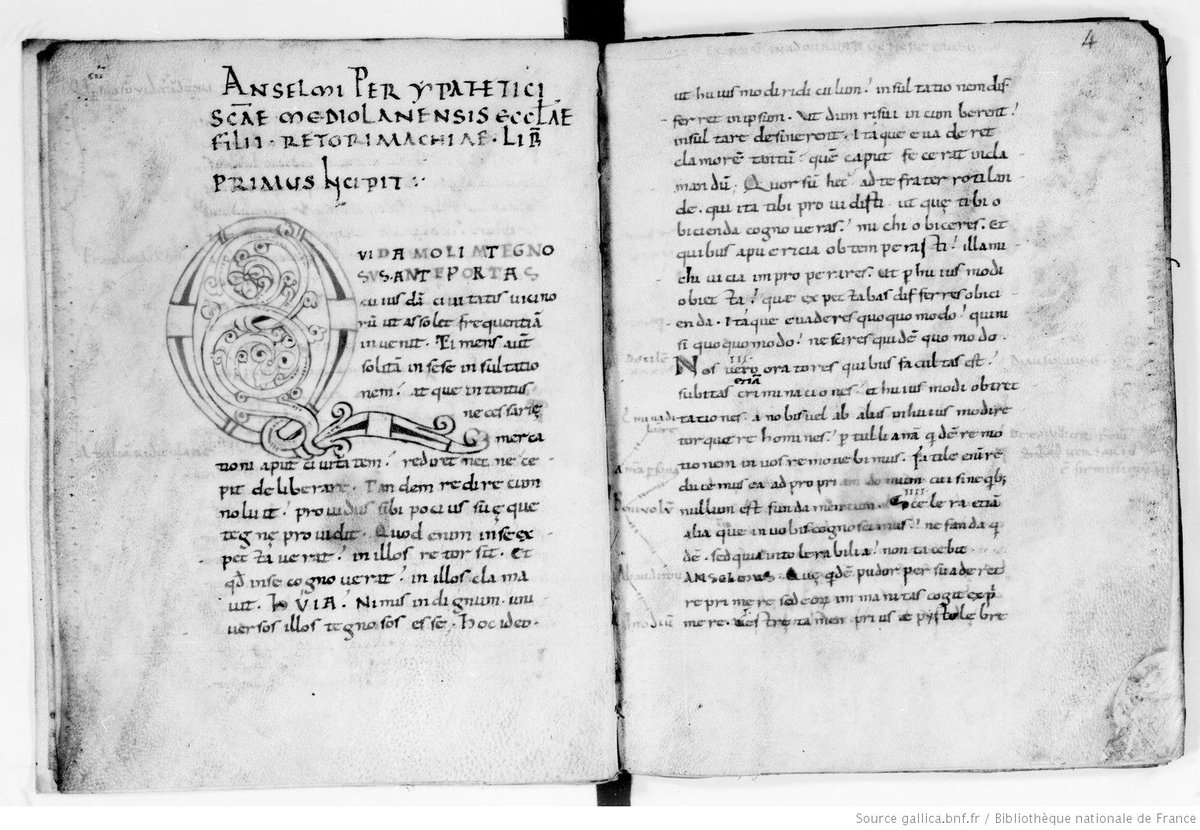 ANSELMI PERYPATETICI
SCAE MEDIOLANENSIS ECCLAE
FILII · RETORIMACHIAE · LIB
PRIMUS INCIPIT
QVIDAM OLIM TEGNO
SVS ANTE PORTAS
cuius dã ciuitatis uicino
rũ ut assolet frequentiã
inuenit. Ei mens aut̃
solitã in sese insultatio
nem ! atque intentus
necessarię
merca
tioni aput ciuitatem ! rediret nec ne ce
pit deliberare. Tandem redire cum
noluit ! prouidus sibi pocius suęque
tegnę prouidit. Quod enim in se ex
pectauerat ! in illos retorsit. Et
qd in se cognouerat ! in illos clama
uit. HVIA ! Nimus indignum · uni
uersos illos tegnosos esse. hoc ideo.
4
ut huius modi ridiculum ! insultatio nem dif
ferret in ipsum. Vt dum risui incumberent !
insultare desinerent. Itaque euaderet
clamorẽ tantũ ! quẽ caput fecerat incla
mandũ. Quorsũ hec ! ad te frater rotilan
de. qui ita tibi prouidisti. ut quę tibi o
bicienda cognoueras ! michi obiceres. Et
quibus a puericia obtemperasti ! illa mi
chi uicia improperares. Et p huius modi
obiecta ! quę expectabas differres obici
enda. Itaque euaderes quoquo modo ! qui ni
si quoquo modo ! nescires quidẽ quo modo.
III
Nos uero oratores quibus facultas est !
etiã
subitas criminaciones. et huius modi obiret
tationes. a nobis uel ab aliis in huius modi re
torquere homines ! p tullianã qdẽ remo
tionem in uos remouebimus. Fatile enĩ re
ducemus ea ad proprium domum cui sine qb;
nullum est fundamentum. Scelera etiã
IIII
alia quę in uobis cognoscimus ! nefanda q
dẽ. sed quia intolerabilia ! non tacebit
ANSELMUS. Quę qdẽ pudor persuaderet
reprimere sed eorũ inmanitas cogit exp
mere. Vestrę tamen prius æpystolę bre
Source gallica.bnf.fr / Bibliothèque nationale de France